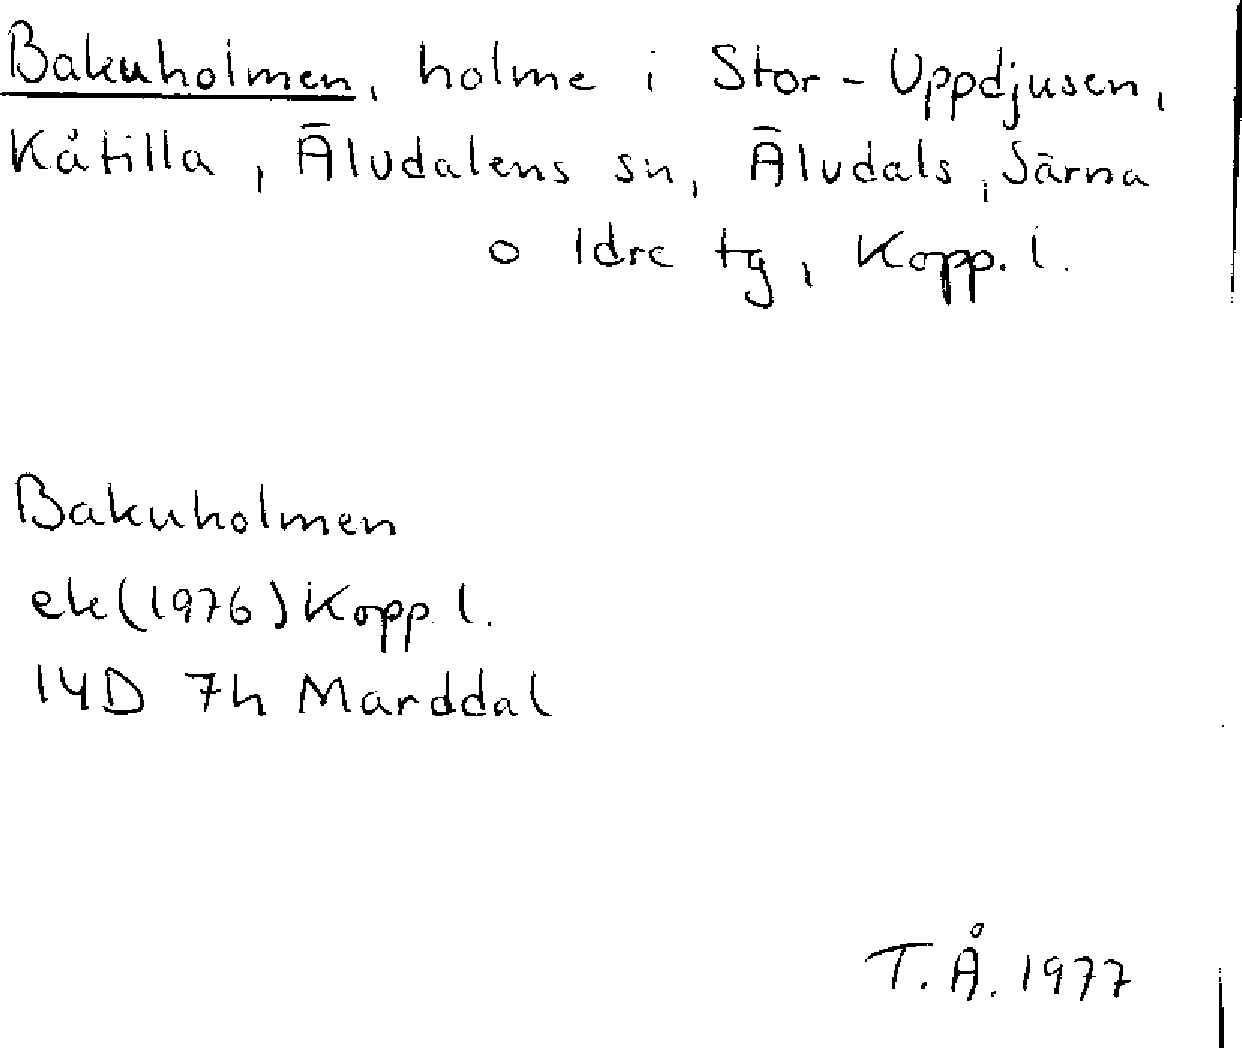 Bakuholmen, holme i Stor-Uppdjusen,
Kåtilla, Älvdalens sn, Älvdals, Särna
o Idre tg, Kopp. l.
Bakuholmen
ek (1976) Kopp. l.
14D 7h Marddal
T. Å. 1977